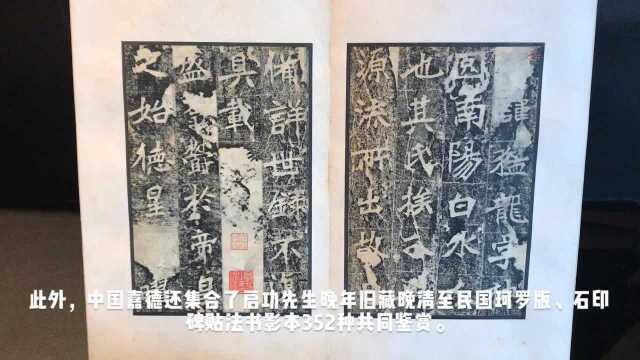 諱猛龍字
冏南陽白水
也其氏族
源流所出故
備詳世錄不復
具載
盛鬱於帝皇
之始德星
此外，中国嘉德还集合了启功先生晚年旧藏晚清至民国珂罗版、石印
碑贴法书影本352种共同鉴赏。